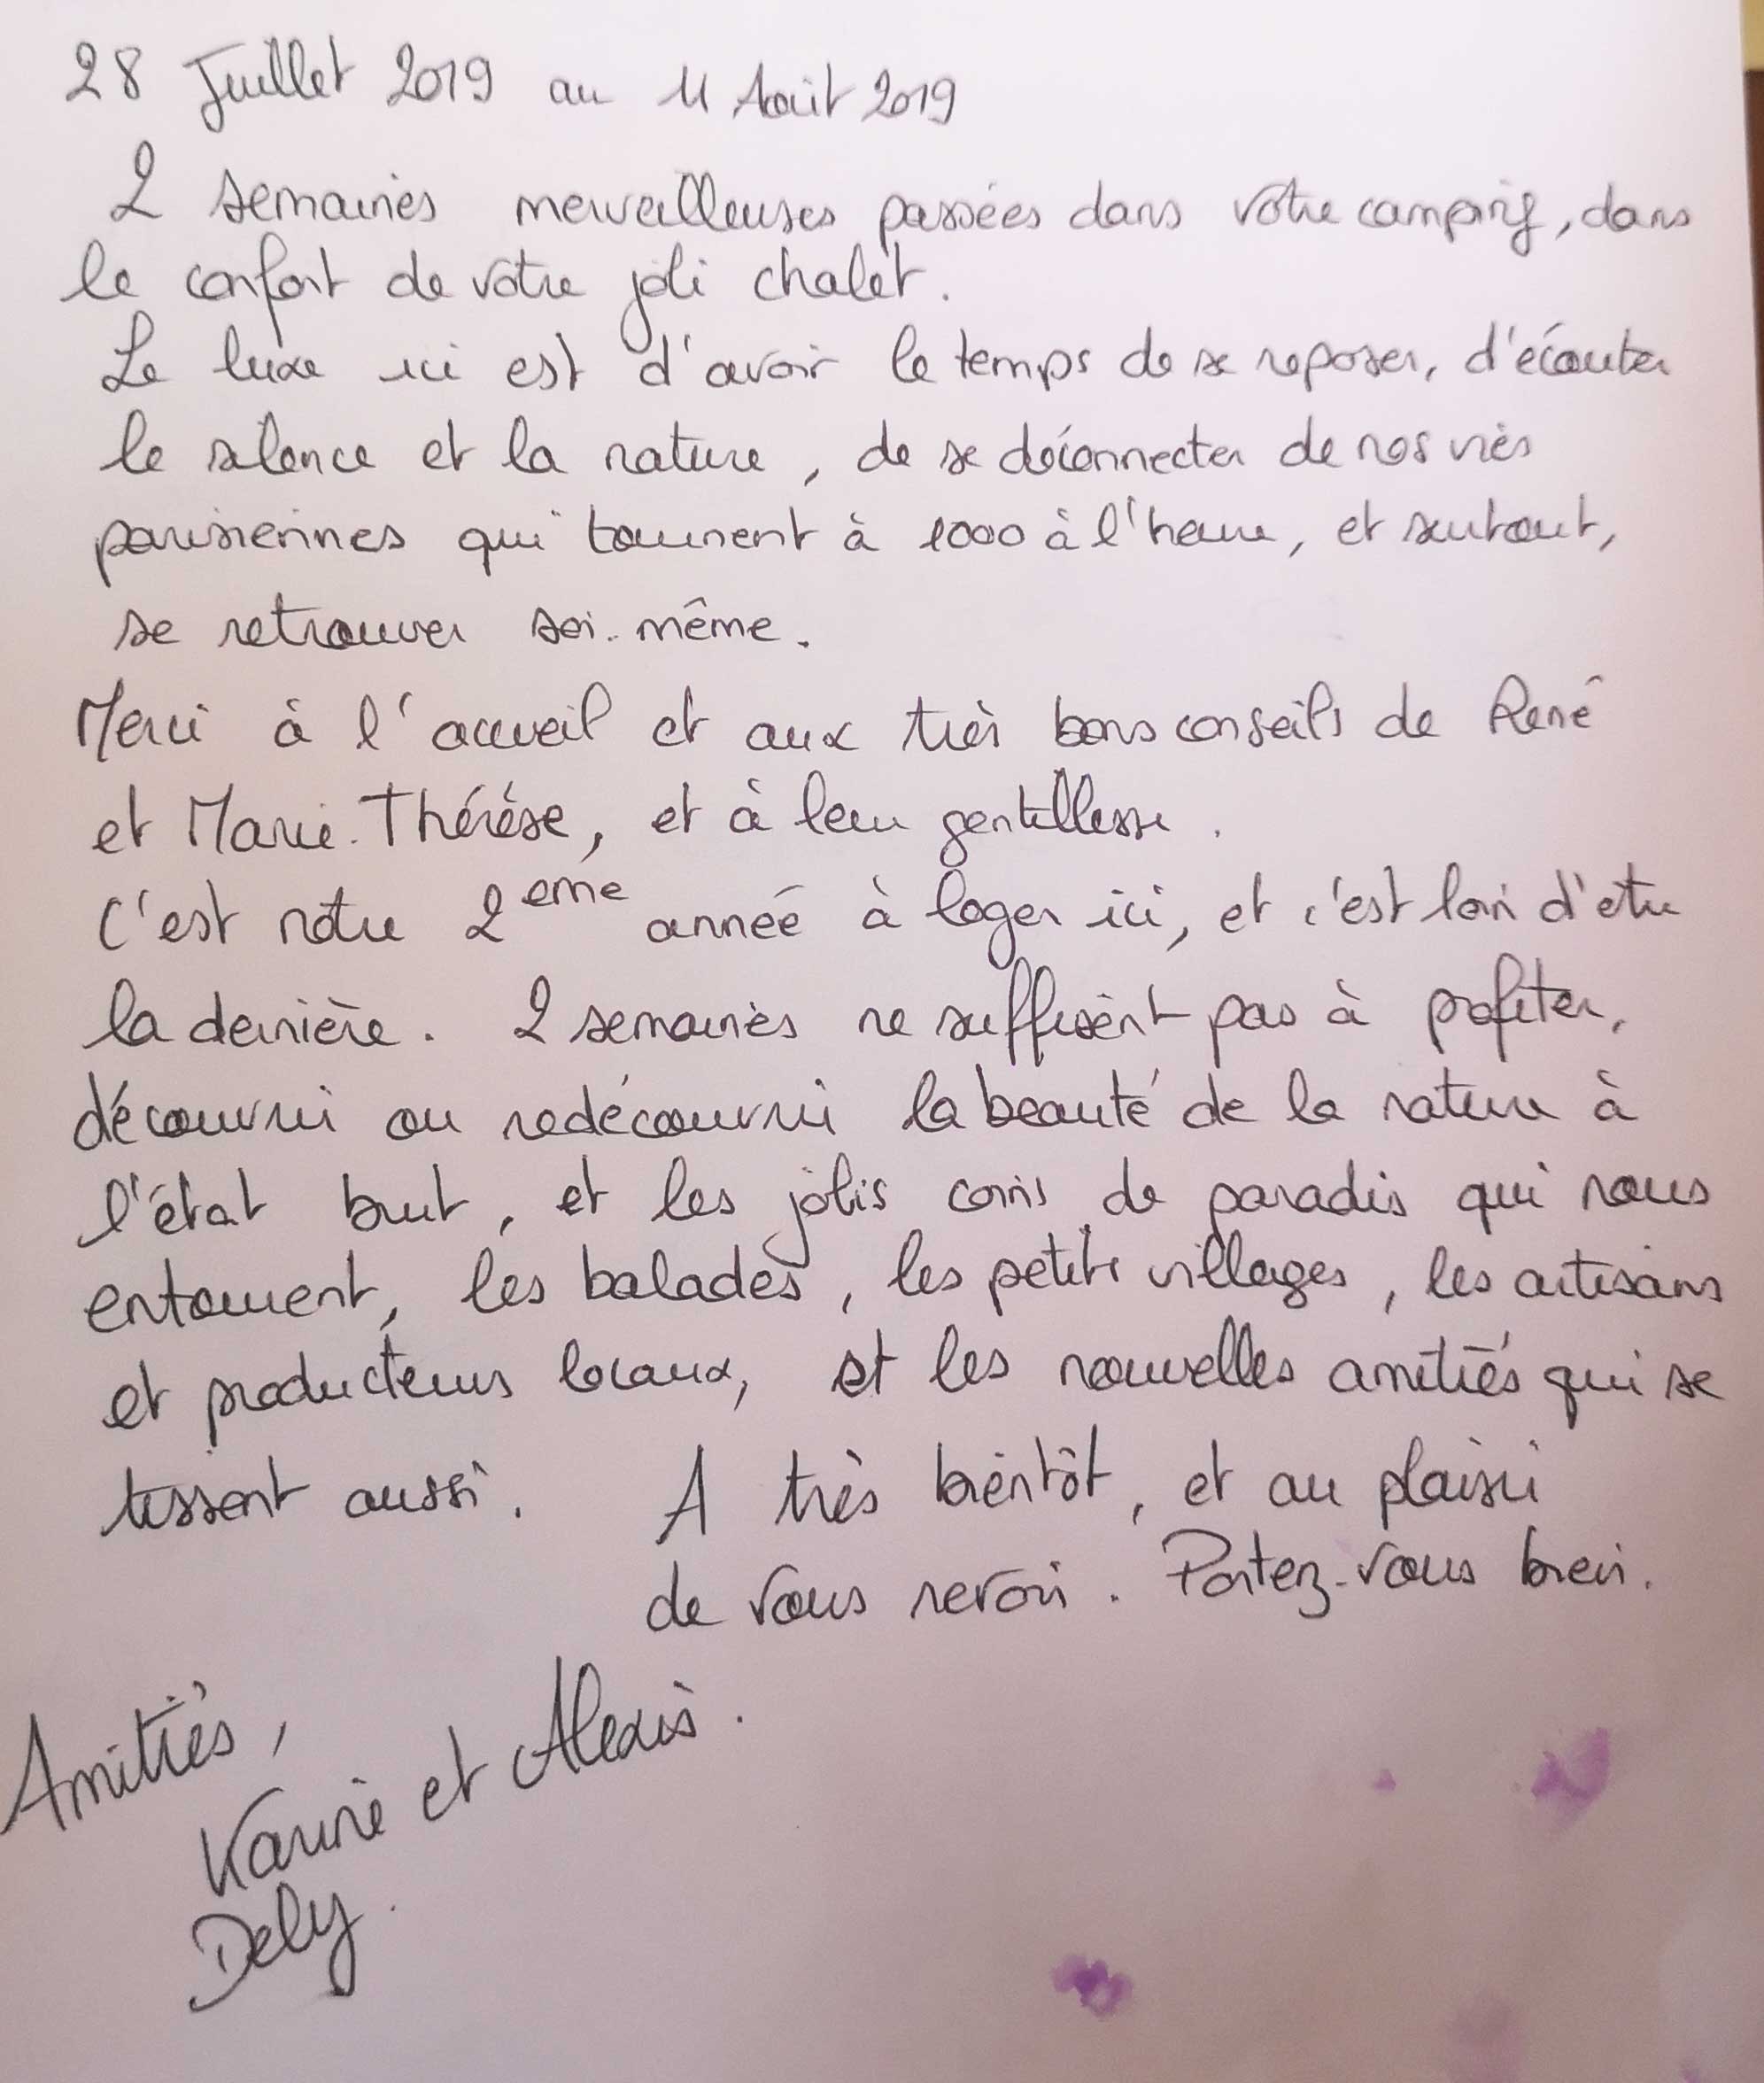 28 Juillet 2019 au 11 Août 2019
2 semaines merveilleuses passées dans votre camping, dans
le confort de votre joli chalet.
Le luxe ici est d'avoir le temps de se reposer, d'écouter
le silence et la nature, de se déconnecter de nos vies
parisiennes qui tournent à 1000 à l'heure, et surtout,
se retrouver soi-même.
Merci à l'accueil et aux très bons conseils de René
et Marie-Thérèse, et à leur gentillesse.
C'est notre 2eme année à loger ici, et c'est loin d'etre
la dernière. 2 semaines ne suffisent pas à profiter,
découvrir ou redécouvrir la beauté de la nature à
l'état brut, et les jolis coins de paradis qui nous
entourent, les balades, les petits villages, les artisans
et producteurs locaux, et les nouvelles amitiés qui se
tissent aussi. A très bientôt, et au plaisir
de vous revoir. Portez-vous bien.
Amitiés,
Karine et Alexis.
Dely.